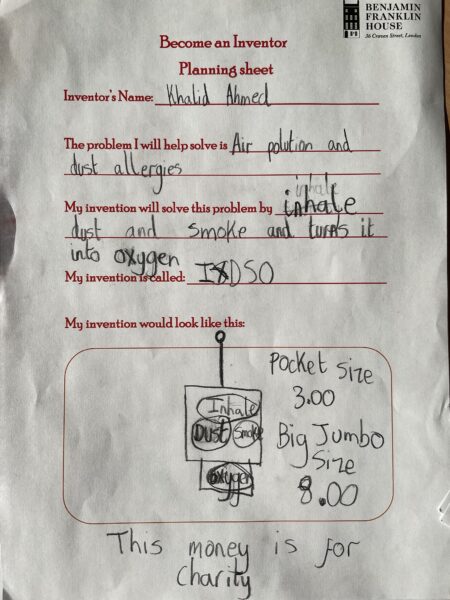 BENJAMIN
FRANKLIN
HOUSE
36 Craven Street, London
Become an Inventor
Planning sheet
Inventor's Name: Khalid Ahmed
The problem I will help solve is Air polution and
dust allergies
inhale
My invention will solve this problem by inhale
dust and smoke and turns it
into oxygen
My invention is called: IXDSO
My invention would look like this:
Pocket Size
3.00
Inhale
Dust Smoke
oxygen
Big Jumbo
Size
8.00
This money is for
Charity